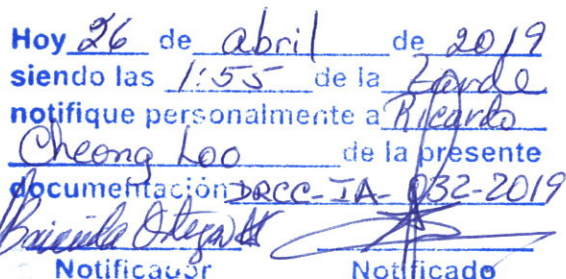 Hoy 26 de abril de 2019
siendo las 1:55 de la tarde
notifique personalmente a Ricardo
Cheong Loo de la presente
documentación DRCC-IA-032-2019
Ortega
Notificador Notificado